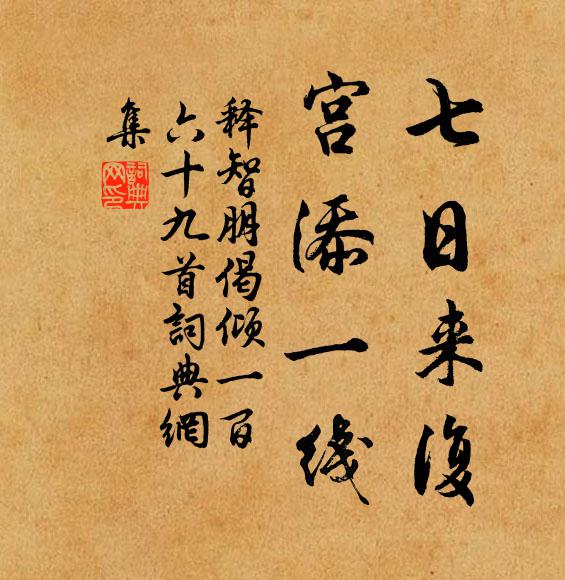 七日来復
宫添一线
释智朋偈倾一百
六十九首詞典網
集
詞典
网印